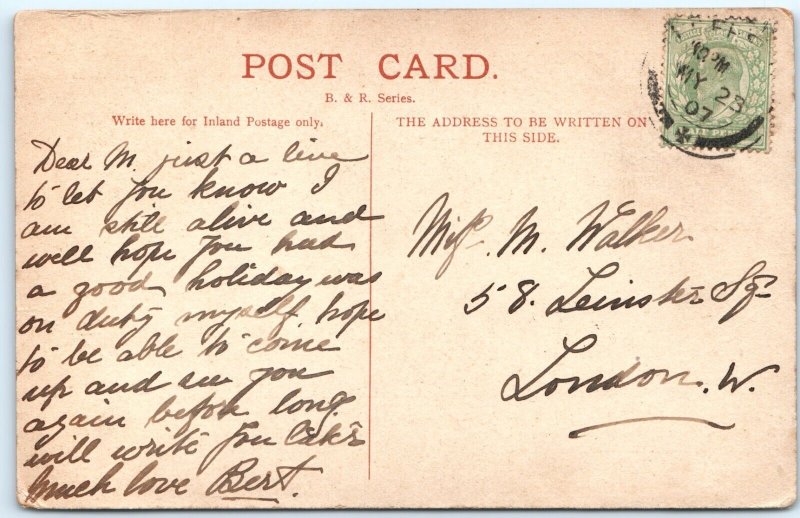 POST CARD.
B. & R. Series.
Write here for Inland Postage only.
THE ADDRESS TO BE WRITTEN ON
THIS SIDE.
10 PM
MY 23
07
Dear M. just a line
to let you know I
am still alive and
well hope you had
a good holiday was
on duty myself hope
to be able to come
up and see you
again before long
will write you later
much love Bert.
Miss. M. Walker
58. Leinster Sq.
London. W.